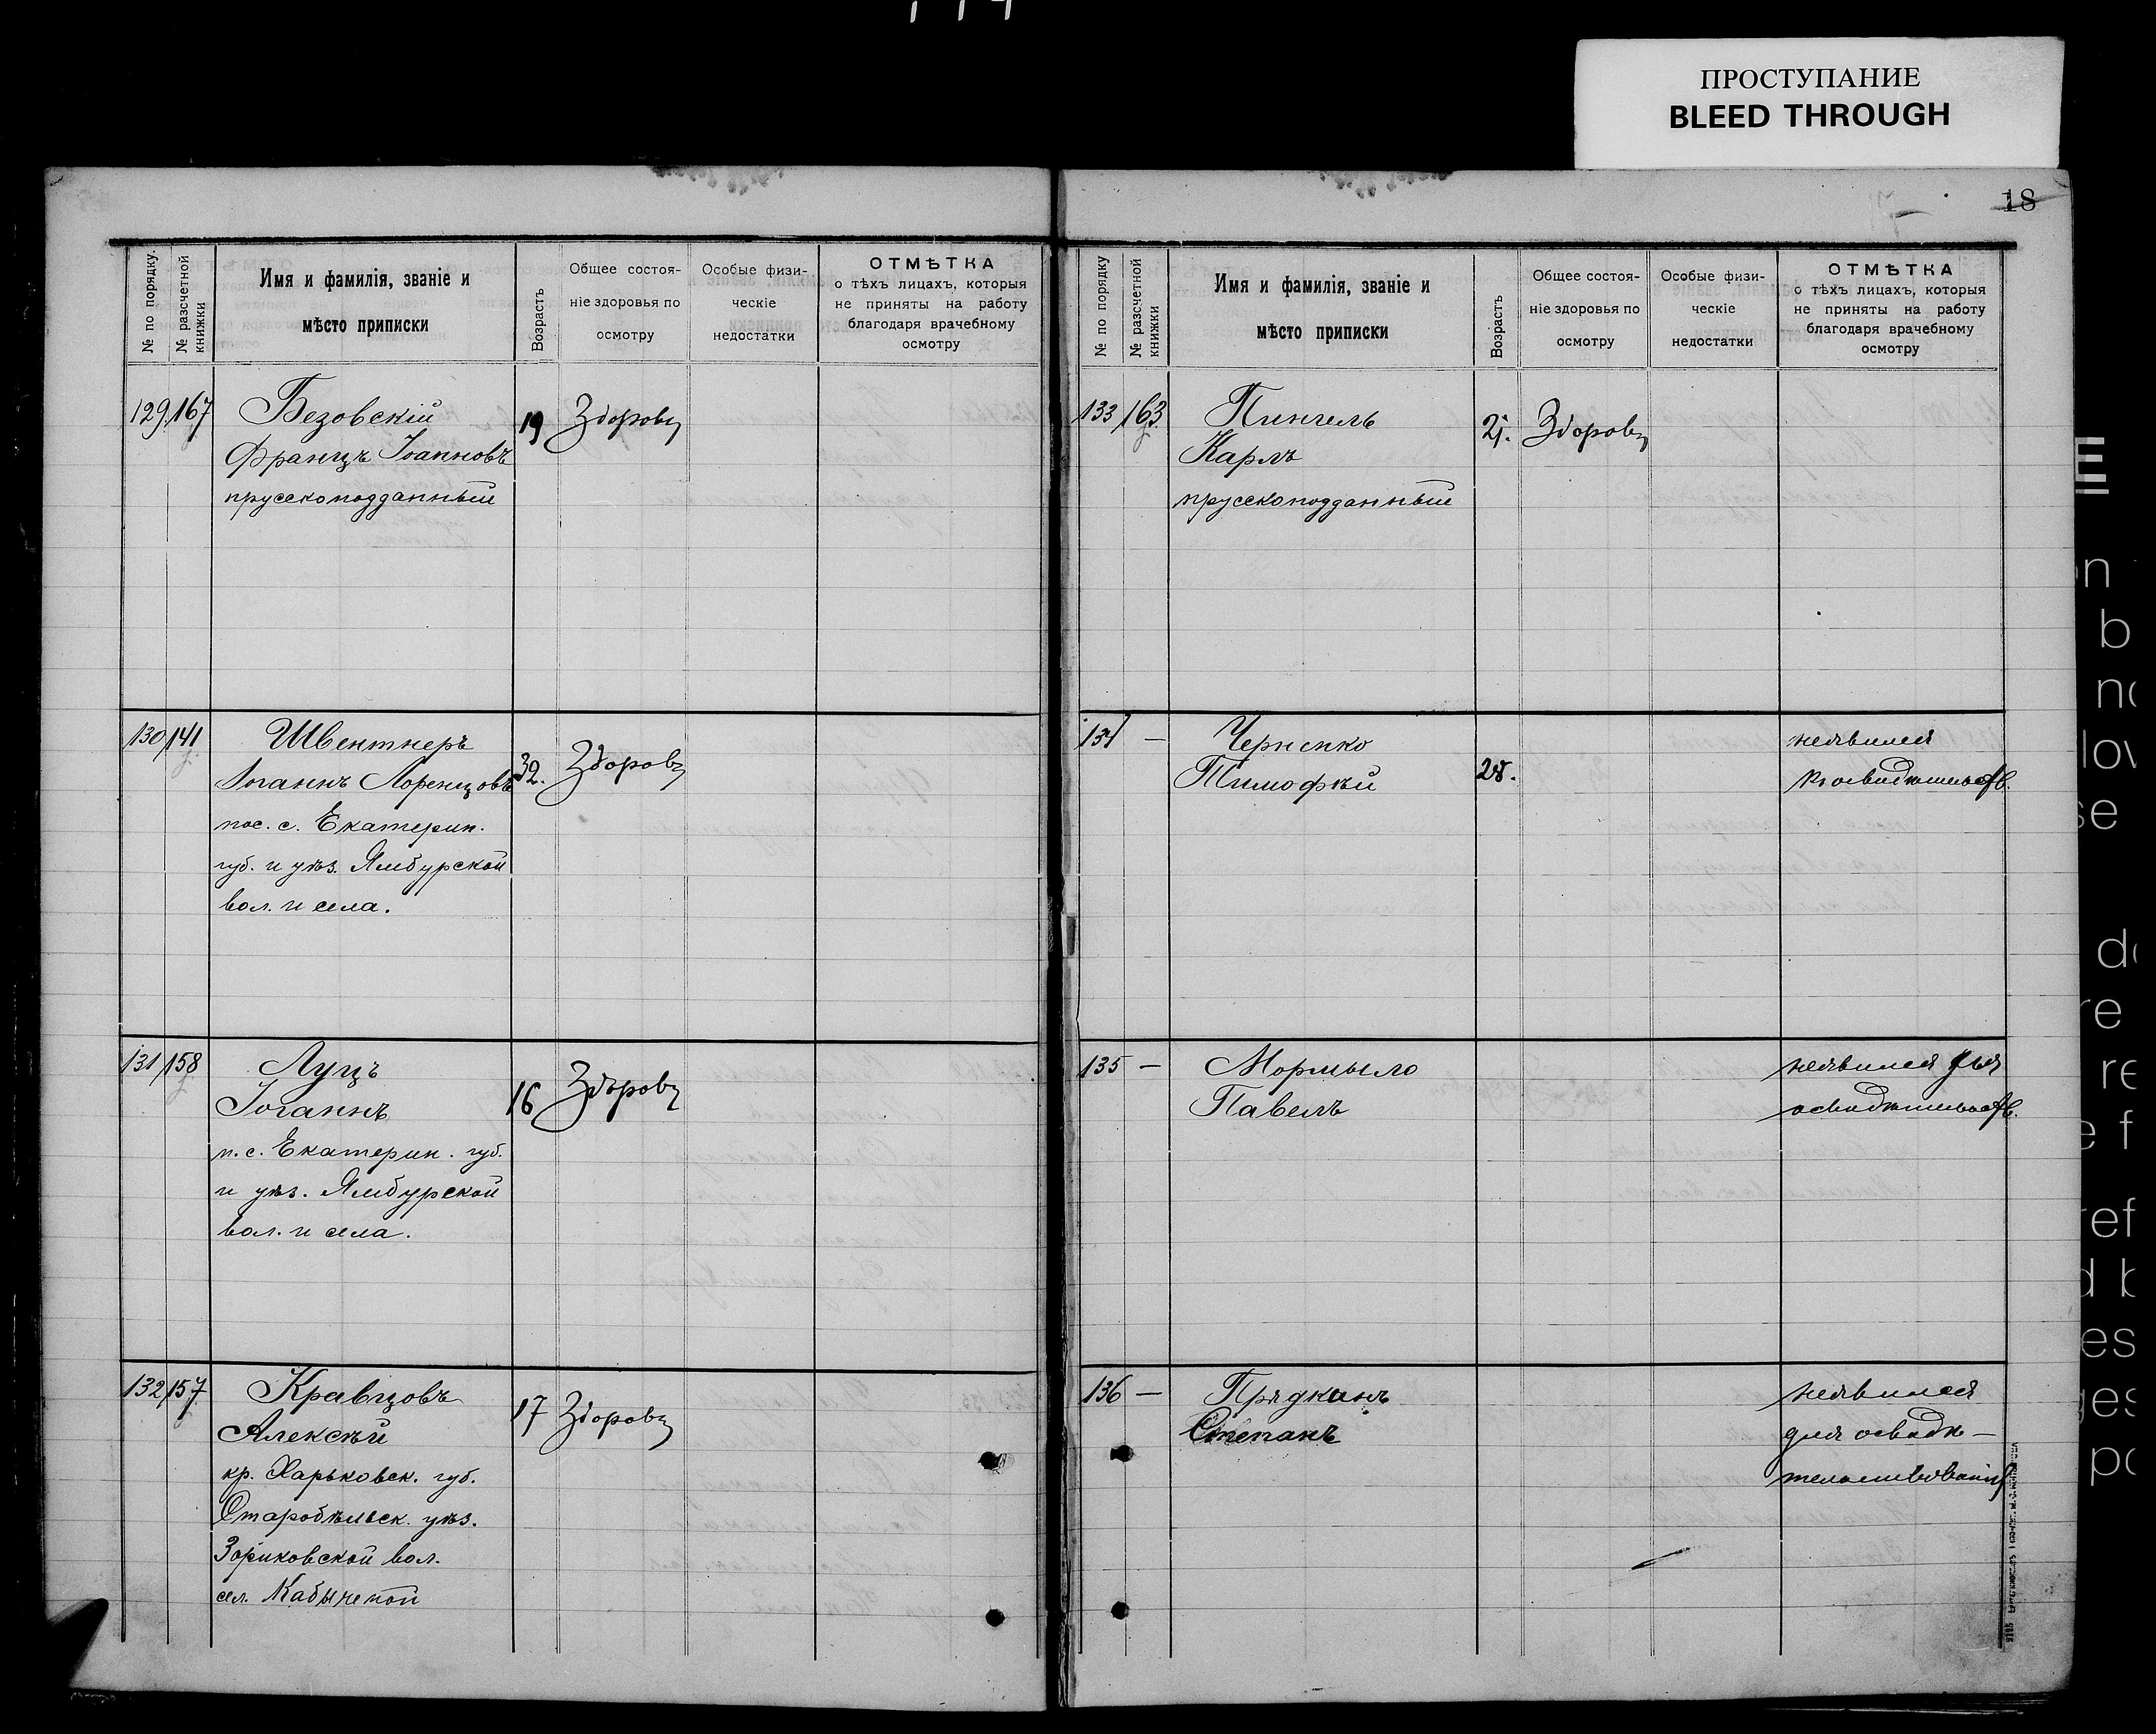 ПРОСТУПАНИЕ
BLEED THROUGH
18
№ по порядку.
№ разсчетной книжки
Имя и фамилія, званіе и
мѣсто приписки
Возрастъ
Общее состоя-
ніе здоровья по
осмотру
Особые физи-
ческіе
недостатки
ОТМѢТКА
о тѣхъ лицахъ, которыя
не приняты на работу
благодаря врачебному
осмотру
129 167 Безовскій 19 Здоровъ
Францъ Іоанновъ
прусскоподданный
130 141 Швентнеръ 32. Здоровъ
Іоганнъ Лоренцовъ
пос. с. Екатерин.
губ. и уѣз. Ямбурской
вол. и села.
131 158 Луцъ 16 Здоровъ
Іоганнъ
п. с. Екатерин. губ.
и уѣз. Ямбурской
вол. и села.
132 157 Кравцовъ 17 Здоровъ
Алексѣй
кр. Харьковск. губ.
Старобѣльск. уѣз.
Зориковской вол.
сел.
№ по порядку
№ разсчетной книжки
Имя и фамилія, званіе и
мѣсто приписки
Возрастъ
Общее состоя-
ніе здоровья по
осмотру
Особые физи-
ческіе
недостатки
ОТМѢТКА
о тѣхъ лицахъ, которыя
не приняты на работу
благодаря врачебному
осмотру
133 163 Пингель Здоровъ
Карлъ
прусскоподданный
134 — Черненко неявился
Тимофѣй 28. къ освидѣтельств.
135 — Мормыло неявился для
Павелъ освидѣтельств.
136 — неявился
Степанъ для освидѣ-
тельствованія